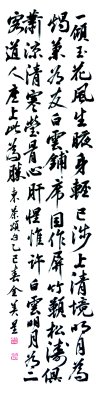 一傾玉花風生腋身輕已涉上清境明月為
燭兼為友白雲鋪席因作屏竹籟松濤俱
蕭涼清寒瑩骨心肝惺惟許白雲明月為二
客道人座上此為勝 東茶頌句乙巳春金美